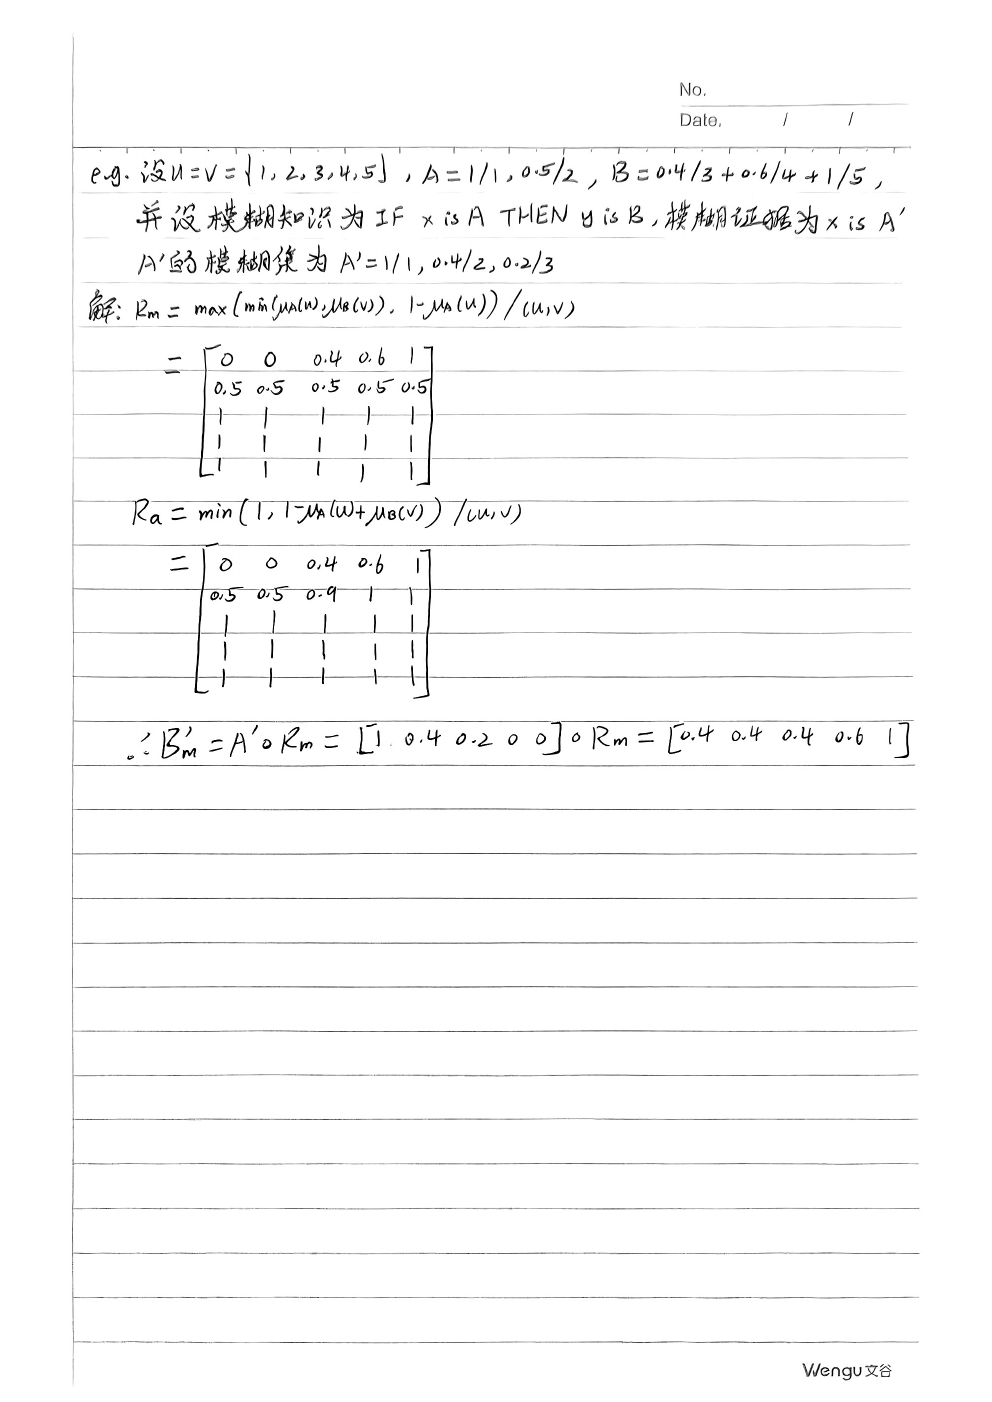 No.
Date. / /
e.g. 设U=V={1,2,3,4,5}, A=1/1,0.5/2, B=0.4/3+0.6/4+1/5,
并设模糊知识为IF x is A THEN y is B,模糊证据为x is A'
A'的模糊集为A'=1/1,0.4/2,0.2/3
解: Rm = max(min(μA(u),μB(v)), 1-μA(u))/(u,v)
= [0 0 0.4 0.6 1
0.5 0.5 0.5 0.5 0.5
1 1 1 1 1
1 1 1 1 1
1 1 1 1 1]
Ra = min(1, 1-μA(u)+μB(v))/(u,v)
= [0 0 0.4 0.6 1
0.5 0.5 0.9 1 1
1 1 1 1 1
1 1 1 1 1
1 1 1 1 1]
∴ B'm = A'∘Rm = [1 0.4 0.2 0 0]∘Rm = [0.4 0.4 0.4 0.6 1]
Wengu文谷